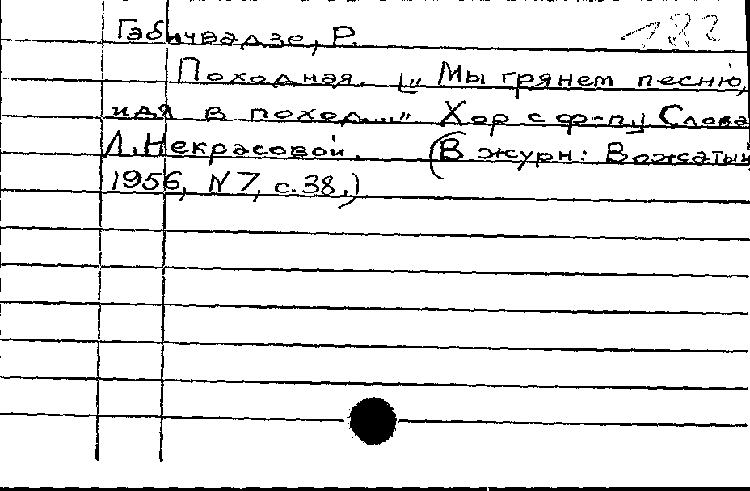 Габичвадзе, Р. 182
Походная. [„Мы грянем песню,
идя в поход...“ Хор с ф-п.] Слова
Л. Некрасовой. (В журн: Вожатый
1956, N7, с.38.)